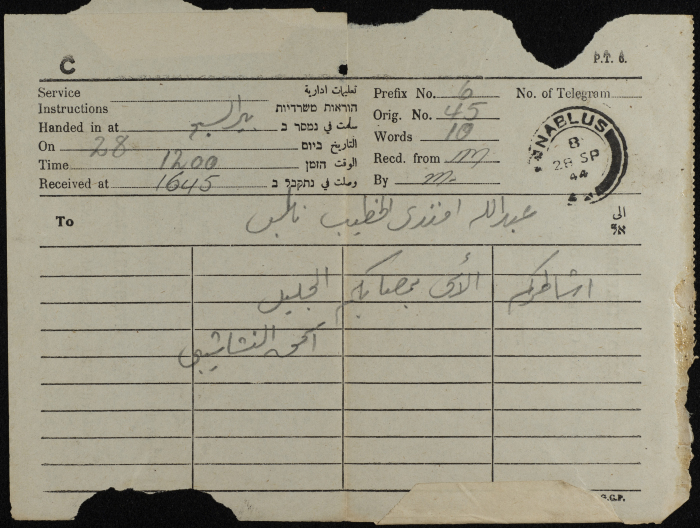 C
P.T. 6.
Service تعليمات ادارية
Instructions הוראות משרדיות
Handed in at بير السبع سلمت في נמסר ב
On 28 التاريخ ביום
Time 1200 الوقت הזמן
Received at 1645 وصلت في נתקבל ב
Prefix No. 6 No. of Telegram
Orig. No. 45
Words 10
Recd. from m
By m
NABLUS
8
28 SP
44
To عبدالله افندي الخطيب نابلس الى אל
اشاطركم الأسى بمصابكم الجليل
النشاشيبي
G.P.